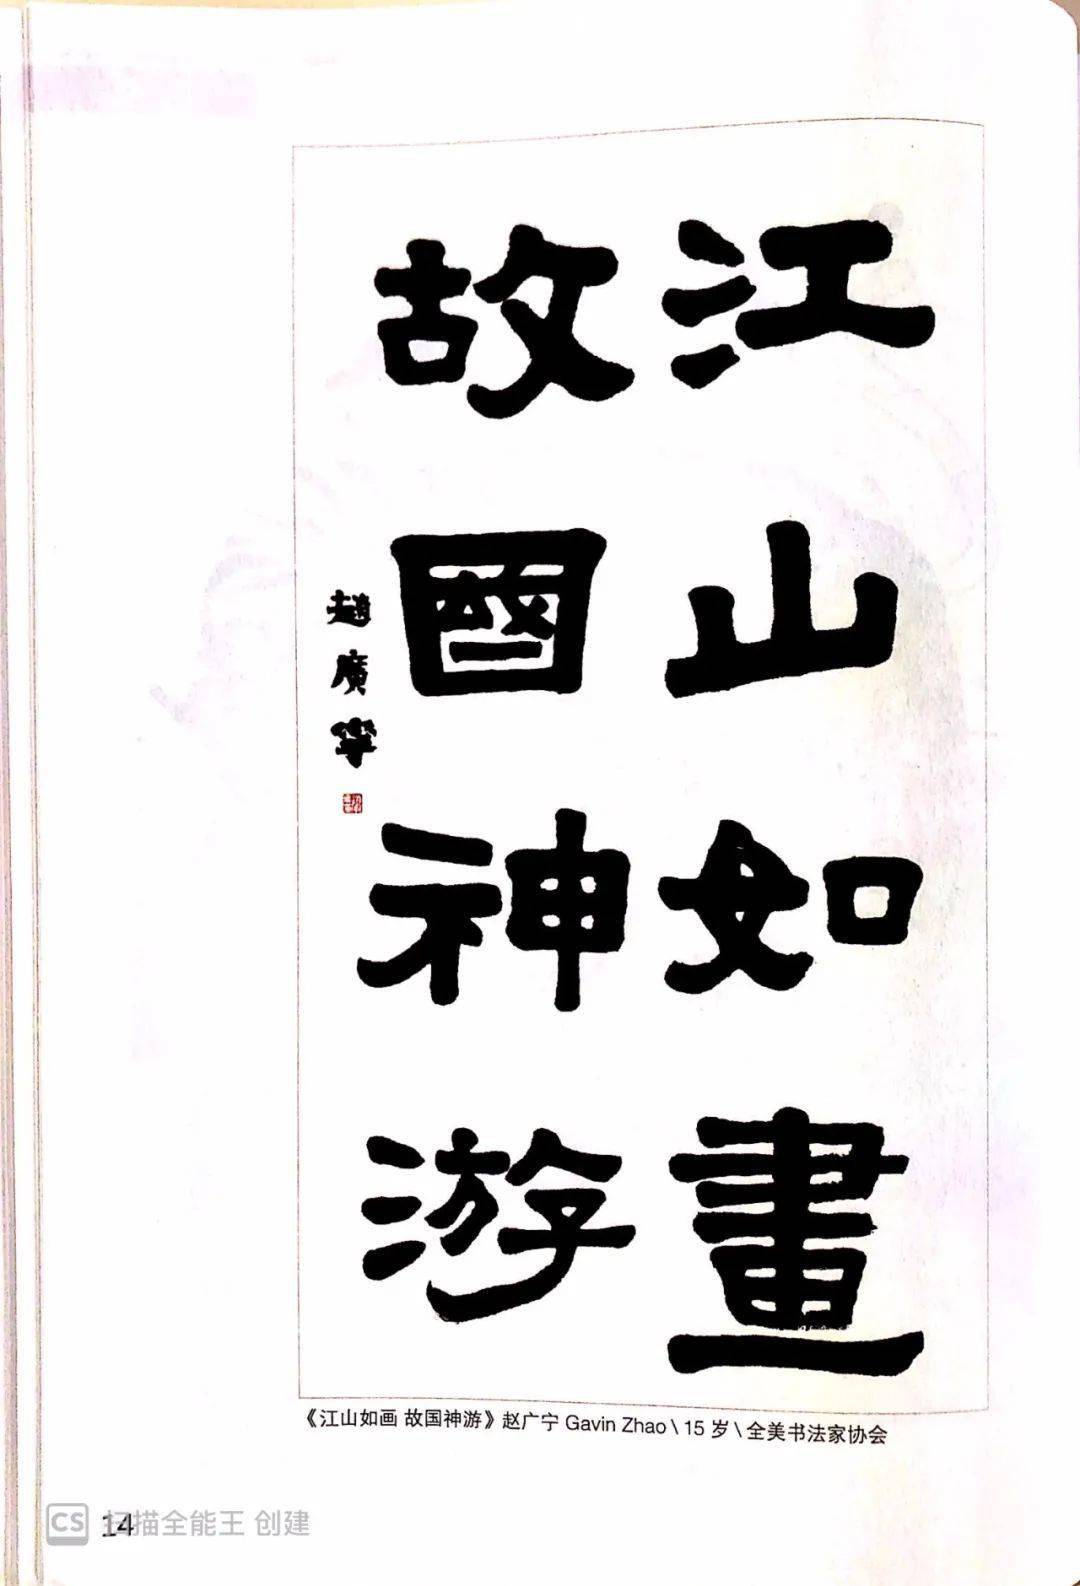 江山如畫
故國神游
趙廣寧
《江山如画 故国神游》赵广宁 Gavin Zhao \ 15 岁 \ 全美书法家协会
14
CS 扫描全能王 创建